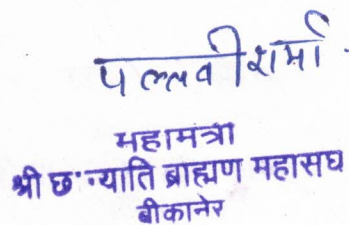 पल्लवी शर्मा
महामत्रा
श्री छ॰न्याति ब्राह्मण महासघ
बीकानेर